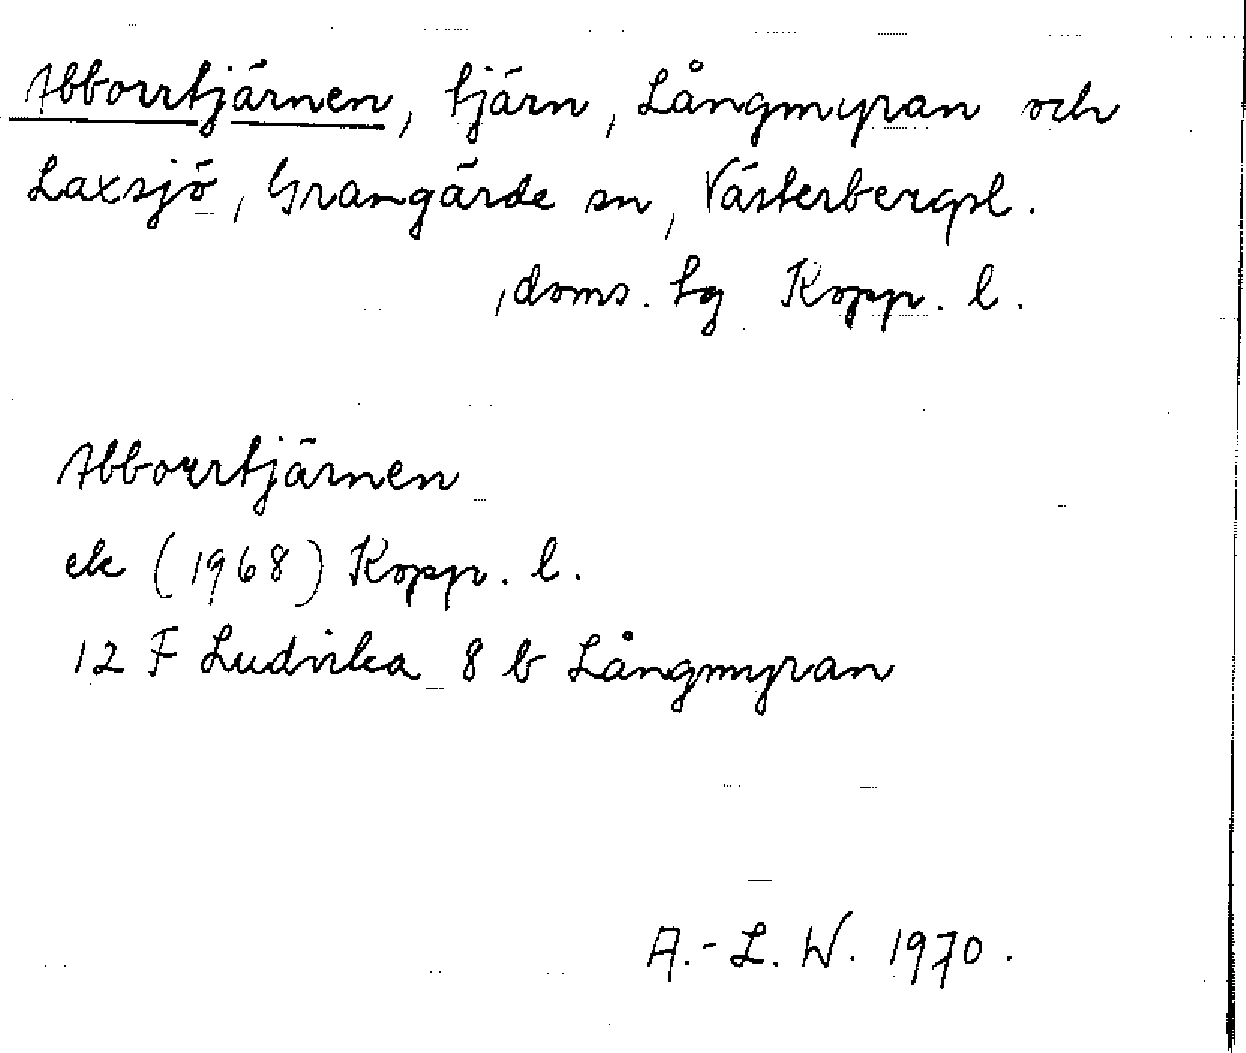 Abborrtjärnen, tjärn, Långmyran och
Laxsjö, Grangärde sn, Västerbergsl.
, doms. tg Kopp. l.
Abborrtjärnen
ek (1968) Kopp. l.
12 F Ludvika 8 b Långmyran
A.-L. W. 1970.